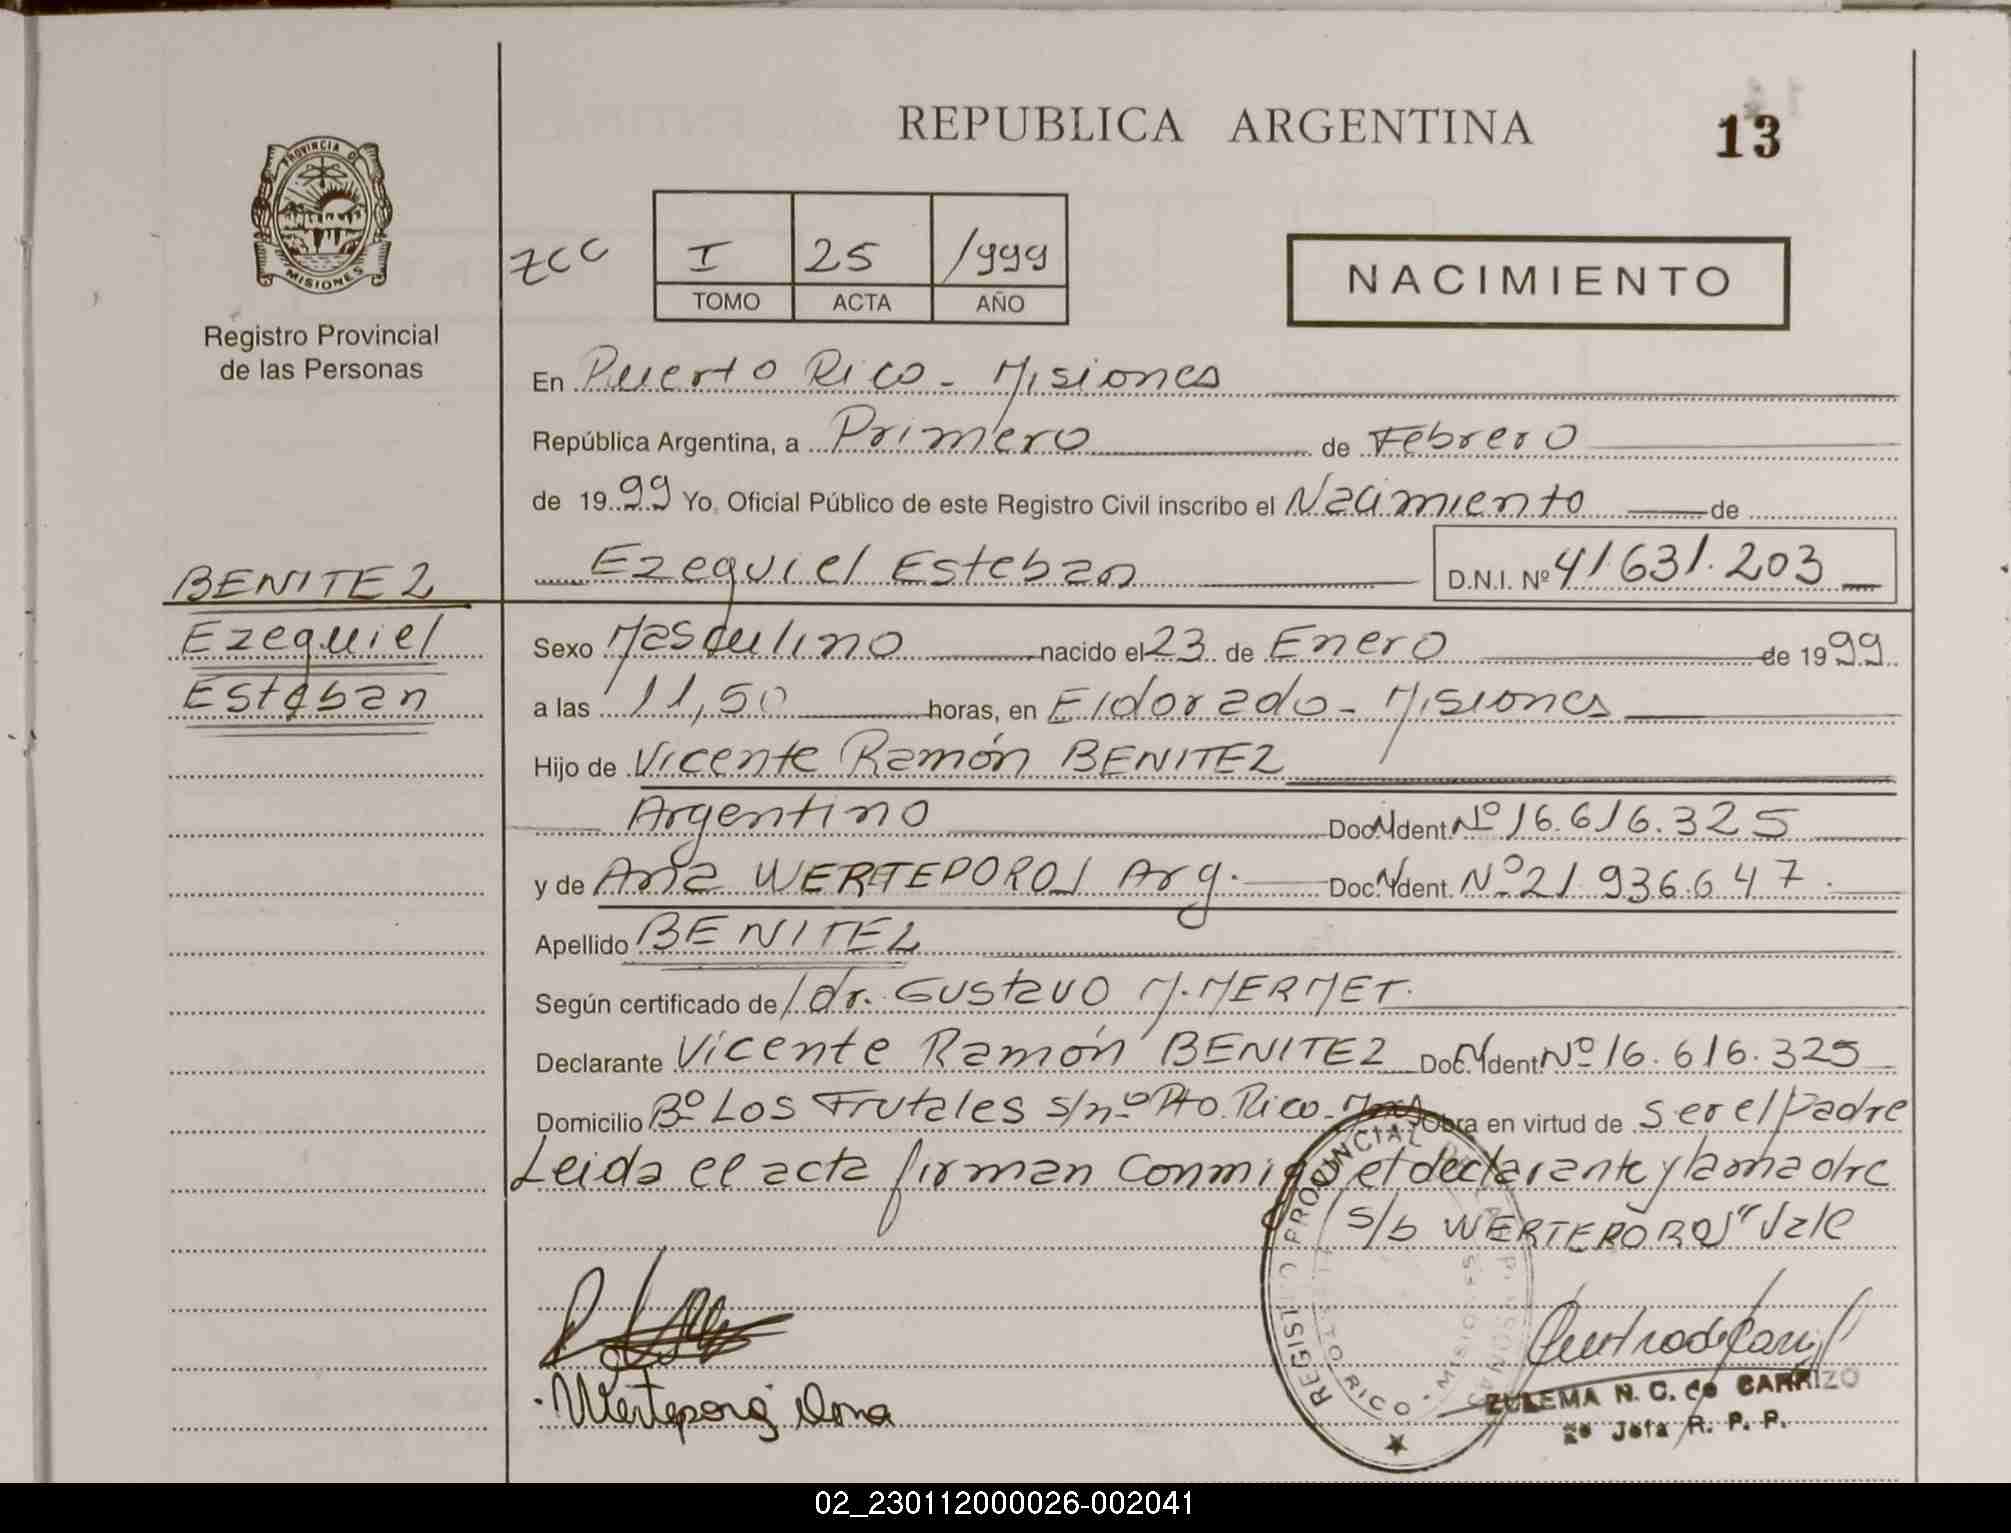 REPUBLICA ARGENTINA
13
PROVINCIA DE
MISIONES
Registro Provincial
de las Personas
ZCC
I 25 1999
TOMO ACTA AÑO
NACIMIENTO
En Puerto Rico - Misiones
República Argentina, a Primero de Febrero
de 1999 Yo, Oficial Público de este Registro Civil inscribo el Nacimiento de
Ezequiel Esteban D.N.I. Nº 41.631.203
BENITEZ
Ezequiel
Esteban
Sexo Masculino nacido el 23 de Enero de 1999
a las 11,50 horas, en Eldorado - Misiones
Hijo de Vicente Ramón BENITEZ
Argentino Doc. Ident. Nº 16.616.325
y de Ana Arg. Doc. Ident. Nº 21.936.647
Apellido BENITEZ
Según certificado de dr. Gustavo M. MERMET.
Declarante Vicente Ramón BENITEZ Doc. Ident. Nº 16.616.325
Domicilio Bº Los Frutales s/nº Pto. Rico - Mnes Obra en virtud de ser el padre
Leida el acta firman conmigo el declarante y la madre
s/b Vale
REGISTRO PROVINCIAL DE LAS PERSONAS
PTO. RICO - MISIONES
ZULEMA N. C. de CARRIZO
2º Jefa R. P. P.
02_230112000026-002041